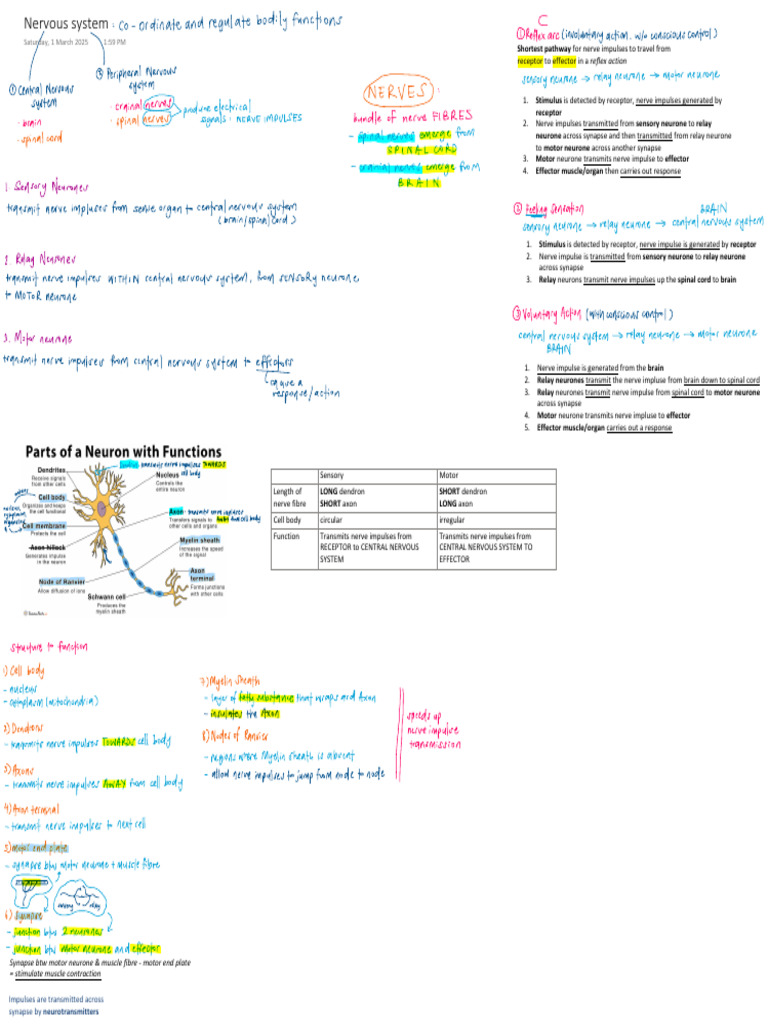 Nervous system : Co-ordinate and regulate bodily functions
Saturday, 1 March 2025 1:59 PM
① Central Nervous system
- brain
- spinal cord
② Peripheral Nervous system
- cranial nerves
- spinal nerves
produce electrical signals: NERVE IMPULSES
NERVES:
bundle of nerve FIBRES
- spinal nerves emerge from SPINAL CORD
- cranial nerves emerge from BRAIN
1. Sensory Neurones
transmit nerve impluses from sense organ to central nervous system
(brain/spinal cord)
2. Relay Neurones
transmit nerve impulses WITHIN central nervous system, from SENSORY neurone
to MOTOR neurone
3. Motor neurone
transmit nerve impulses from central nervous system to effectors
cause a
response/action
① Reflex arc (involuntary action, w/o conscious control)
Shortest pathway for nerve impulses to travel from
receptor to effector in a reflex action
sensory neurone → relay neurone → motor neurone
1. Stimulus is detected by receptor, nerve impulses generated by
receptor
2. Nerve impulses transmitted from sensory neurone to relay
neurone across synapse and then transmitted from relay neurone
to motor neurone across another synapse
3. Motor neurone transmits nerve impulse to effector
4. Effector muscle/organ then carries out response
② Feeling Sensation
BRAIN
sensory neurone → relay neurone → central nervous system
1. Stimulus is detected by receptor, nerve impulse is generated by receptor
2. Nerve impulse is transmitted from sensory neurone to relay neurone
across synapse
3. Relay neurons transmit nerve impulses up the spinal cord to brain
③ Voluntary Action (with conscious control)
central nervous system → relay neurone → motor neurone
BRAIN
1. Nerve impulse is generated from the brain
2. Relay neurones transmit the nerve impluse from brain down to spinal cord
3. Relay neurones transmit nerve impulse from spinal cord to motor neurone
across synapse
4. Motor neurone transmits nerve impluse to effector
5. Effector muscle/organ carries out a response
Parts of a Neuron with Functions
transmits nerve impulses TOWARDS
cell body
Dendrites
Receive signals
from other cells
Nucleus
Controls the
entire neuron
Cell body
Organizes and keeps
the cell functional
Cell membrane
Protects the cell
Axon hillock
Generates impulse
in the neuron
Node of Ranvier
Allow diffusion of ions
Schwann cell
Produces the
myelin sheath
Axon
Transfers signals to
other cells and organs
Myelin sheath
Increases the speed
of the signal
Axon
terminal
Forms junctions
with other cells
Sensory Motor
Length of nerve fibre
LONG dendron
SHORT axon
SHORT dendron
LONG axon
Cell body circular irregular
Function
Transmits nerve impulses from
RECEPTOR to CENTRAL NERVOUS
SYSTEM
Transmits nerve impulses from
CENTRAL NERVOUS SYSTEM TO
EFFECTOR
Structure to function
1) Cell body
- nucleus
- cytoplasm (mitochondria)
2) Dendrons
- transmits nerve impulses TOWARDS cell body
3) Axons
- transmits nerve impulses AWAY from cell body
4) Axon terminal
- transmit nerve impulses to next cell
5) motor end plate
- synapse btw motor neurone + muscle fibre
6) Synapse
- junction btw 2 neurones
- junction btw motor neurone and effector
Synapse btw motor neurone & muscle fibre - motor end plate
= stimulate muscle contraction
Impulses are transmitted across
synapse by neurotransmitters
7) Myelin Sheath
- layer of fatty substance that wraps ard Axon
- insulates the Axon
8) Nodes of Ranvier
- regions where Myelin sheath is absent
- allow nerve impulses to jump from node to node
speeds up
nerve impulse
transmission